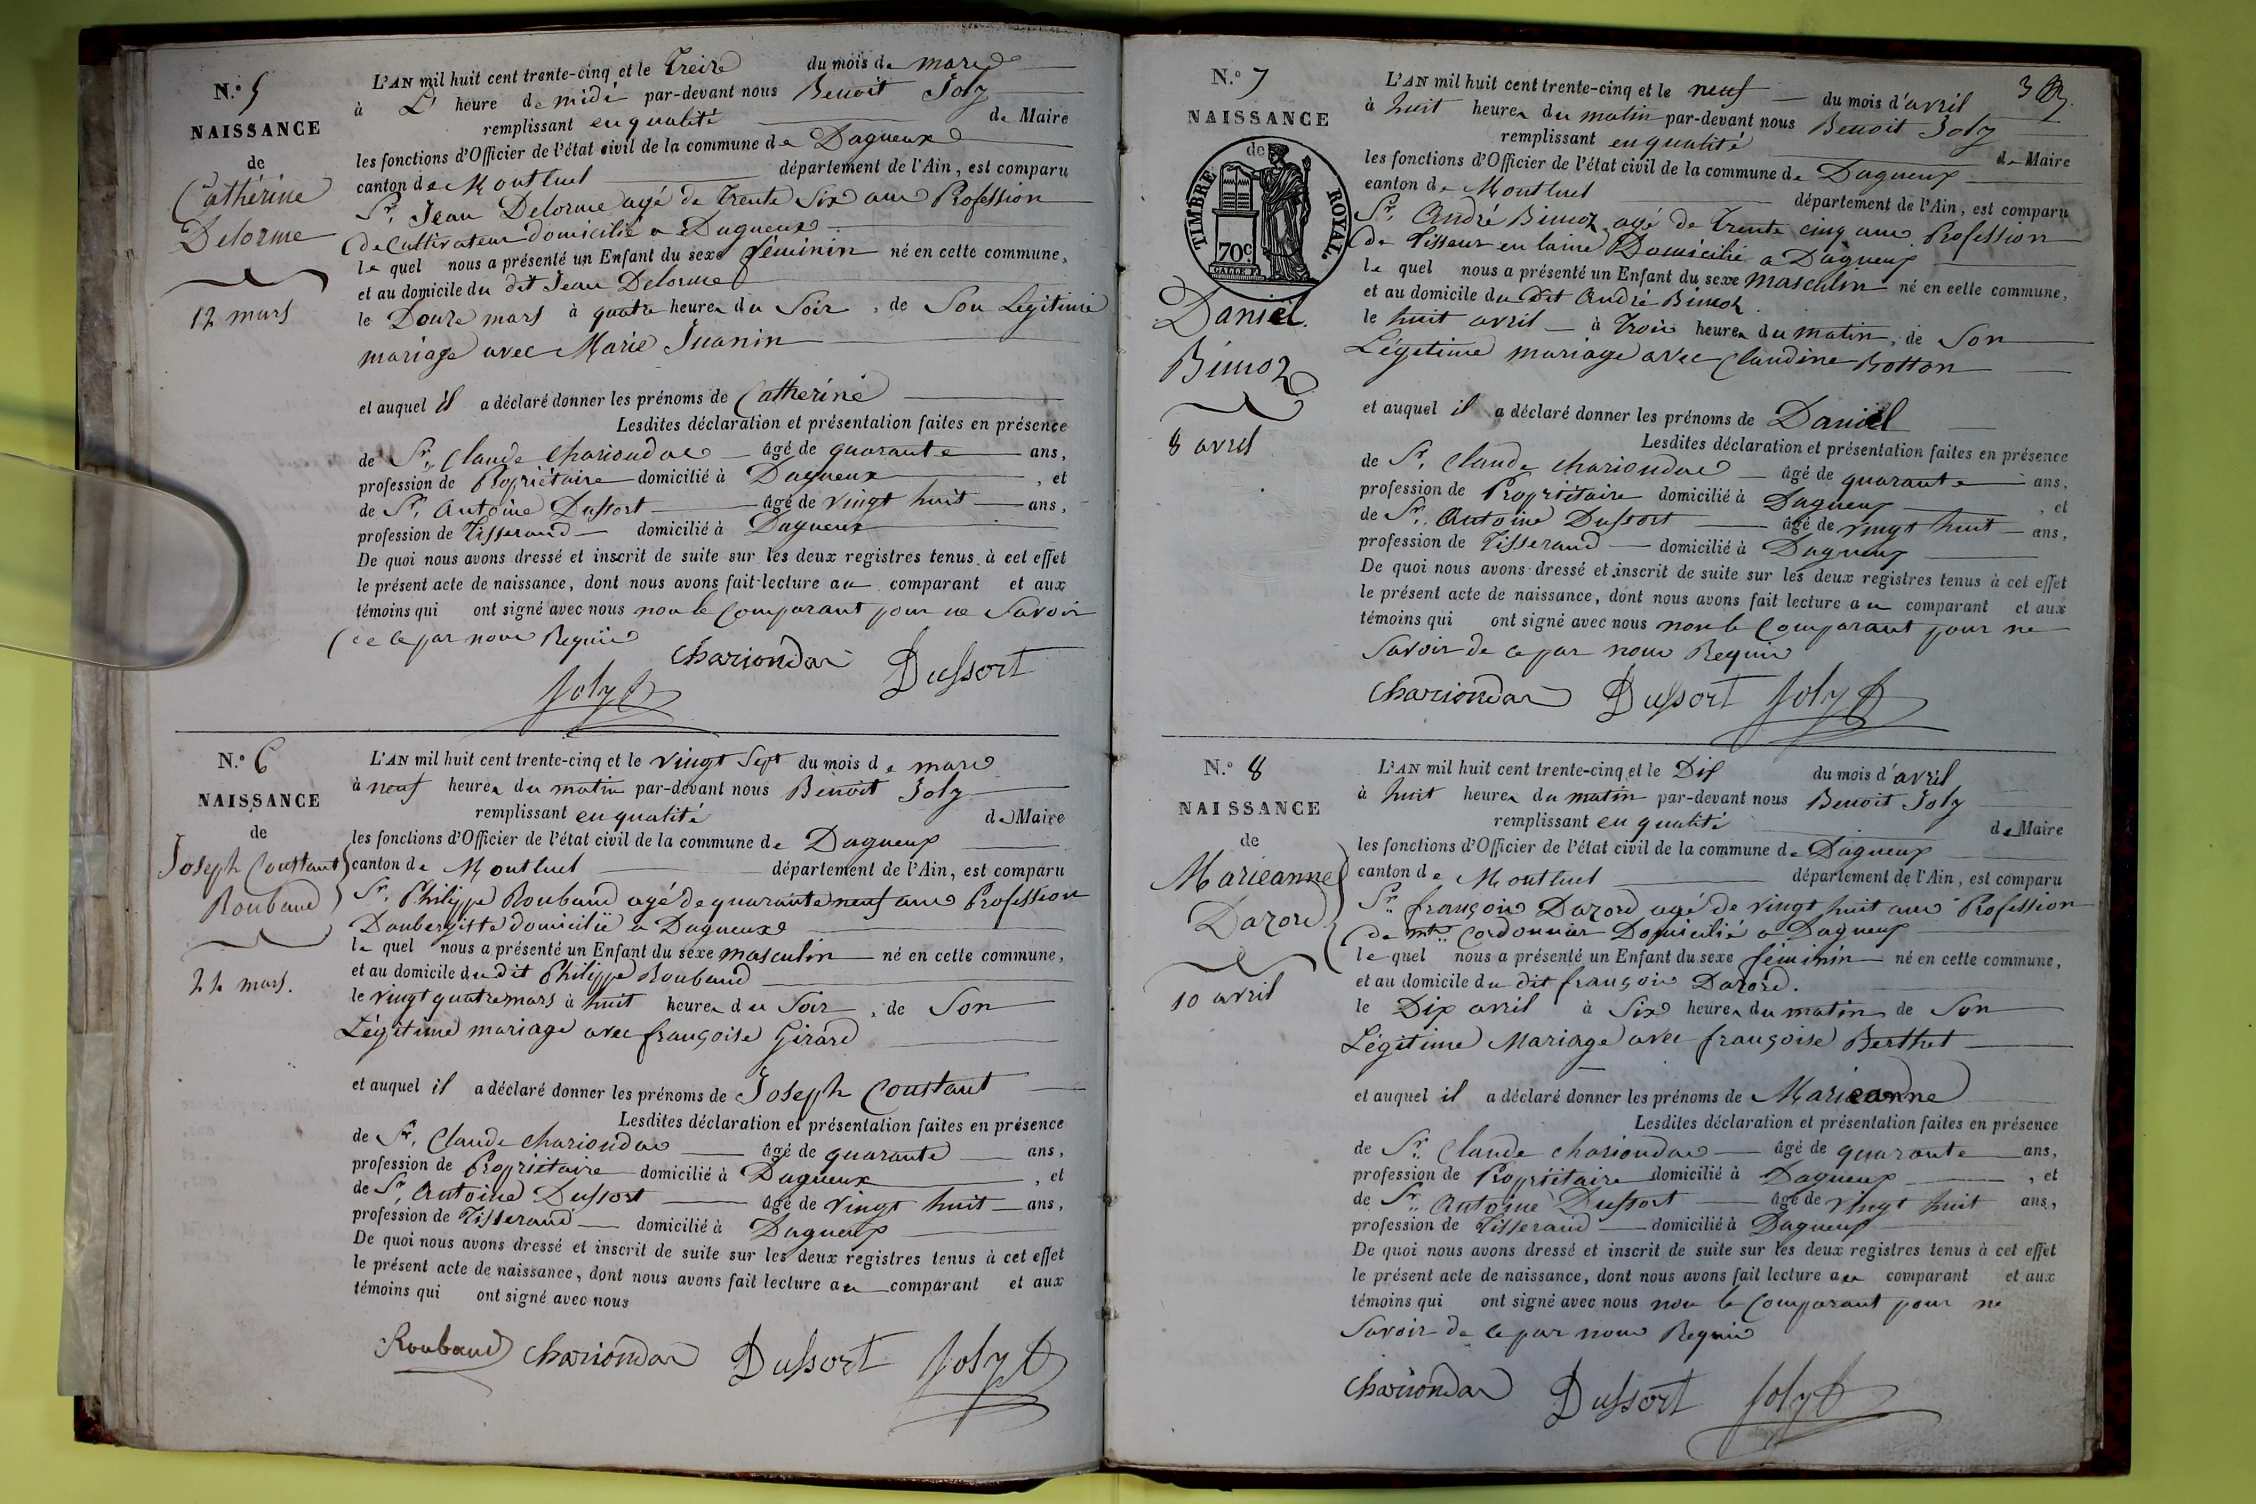 N.º 5
NAISSANCE
de
Cathérine
Delorme
12 mars
L'AN mil huit cent trente-cinq et le Treize du mois de mars
à L' heure de midi par-devant nous Benoit Joly
remplissant en qualité de Maire
les fonctions d'Officier de l'état civil de la commune de Dagneux
canton de Montluel département de l'Ain, est comparu
Sr. Jean Delorme agé de Trente Six ans Profession
de Cultivateur domicilié a Dagneux
le quel nous a présenté un Enfant du sexe féminin né en cette commune,
et au domicile du dit Jean Delorme
le Douze mars à quatre heures du Soir, de Son Légitime
mariage avec Marie Juanin
et auquel il a déclaré donner les prénoms de Cathérine
Lesdites déclaration et présentation faites en présence
de Sr. Claude Chariondas âgé de quarante ans,
profession de Propriétaire domicilié à Dagneux, et
de Sr. Antoine Dussort âgé de vingt huit ans,
profession de Tisserand domicilié à Dagneux
De quoi nous avons dressé et inscrit de suite sur les deux registres tenus à cet effet
le présent acte de naissance, dont nous avons fait lecture au comparant et aux
témoins qui ont signé avec nous non le Comparant pour ne Savoir
de ce par nous Requis
Chariondas Dussort
Joly
N.º 6
NAISSANCE
de
Joseph Constant
Roubaud
24 mars.
L'AN mil huit cent trente-cinq et le vingt Sept du mois de mars
à neuf heures du matin par-devant nous Benoit Joly
remplissant en qualité de Maire
les fonctions d'Officier de l'état civil de la commune de Dagneux
canton de Montluel département de l'Ain, est comparu
Sr. Philippe Roubaud agé de quarante neuf ans Profession
Daubergiste domicilié a Dagneux
le quel nous a présenté un Enfant du sexe masculin né en cette commune,
et au domicile du dit Philippe Roubaud
le vingt quatre mars à huit heures du Soir, de Son
Légitime mariage avec françoise Girard
et auquel il a déclaré donner les prénoms de Joseph Constant
Lesdites déclaration et présentation faites en présence
de Sr. Claude Chariondas âgé de quarante ans,
profession de Propriétaire domicilié à Dagneux, et
de Sr. Antoine Dussort âgé de vingt huit ans,
profession de Tisserand domicilié à Dagneux
De quoi nous avons dressé et inscrit de suite sur les deux registres tenus à cet effet
le présent acte de naissance, dont nous avons fait lecture au comparant et aux
témoins qui ont signé avec nous
Roubaud Chariondas Dussort Joly
3
N.º 7
NAISSANCE
de
TIMBRE ROYAL.
70 c.
Daniel
Bimoz
8 avril
L'AN mil huit cent trente-cinq et le neuf du mois d'avril
à huit heures du matin par-devant nous Benoit Joly
remplissant en qualité de Maire
les fonctions d'Officier de l'état civil de la commune de Dagneux
canton de Montluel département de l'Ain, est comparu
Sr. André Bimoz agé de Trente cinq ans Profession
de Tisseur en laine Domicilié a Dagneux
le quel nous a présenté un Enfant du sexe masculin né en cette commune,
et au domicile du dit André Bimoz
le huit avril à Trois heures du matin, de Son
Légitime mariage avec Claudine Botton
et auquel il a déclaré donner les prénoms de Daniel
Lesdites déclaration et présentation faites en présence
de Sr. Claude Chariondas âgé de quarante ans,
profession de Propriétaire domicilié à Dagneux, et
de Sr. Antoine Dussort âgé de vingt huit ans,
profession de Tisserand domicilié à Dagneux
De quoi nous avons dressé et inscrit de suite sur les deux registres tenus à cet effet
le présent acte de naissance, dont nous avons fait lecture au comparant et aux
témoins qui ont signé avec nous non le Comparant pour ne
Savoir de ce par nous Requis
Chariondas Dussort Joly
N.º 8
NAISSANCE
de
Marieanne
Dazord
10 avril
L'AN mil huit cent trente-cinq et le Dix du mois d'avril
à huit heures du matin par-devant nous Benoit Joly
remplissant en qualité de Maire
les fonctions d'Officier de l'état civil de la commune de Dagneux
canton de Montluel département de l'Ain, est comparu
Sr. françois Dazord agé de vingt huit ans Profession
de mtre Cordonnier Domicilié a Dagneux
le quel nous a présenté un Enfant du sexe féminin né en cette commune,
et au domicile du dit françois Dazord.
le Dix avril à Six heures du matin de Son
Légitime Mariage avec françoise Berthet
et auquel il a déclaré donner les prénoms de Marieanne
Lesdites déclaration et présentation faites en présence
de Sr. Claude Chariondas âgé de quarante ans,
profession de Propriétaire domicilié à Dagneux, et
de Sr. Antoine Dussort âgé de vingt huit ans,
profession de Tisserand domicilié à Dagneux
De quoi nous avons dressé et inscrit de suite sur les deux registres tenus à cet effet
le présent acte de naissance, dont nous avons fait lecture au comparant et aux
témoins qui ont signé avec nous non le Comparant pour ne
Savoir de ce par nous Requis
Chariondas Dussort Joly